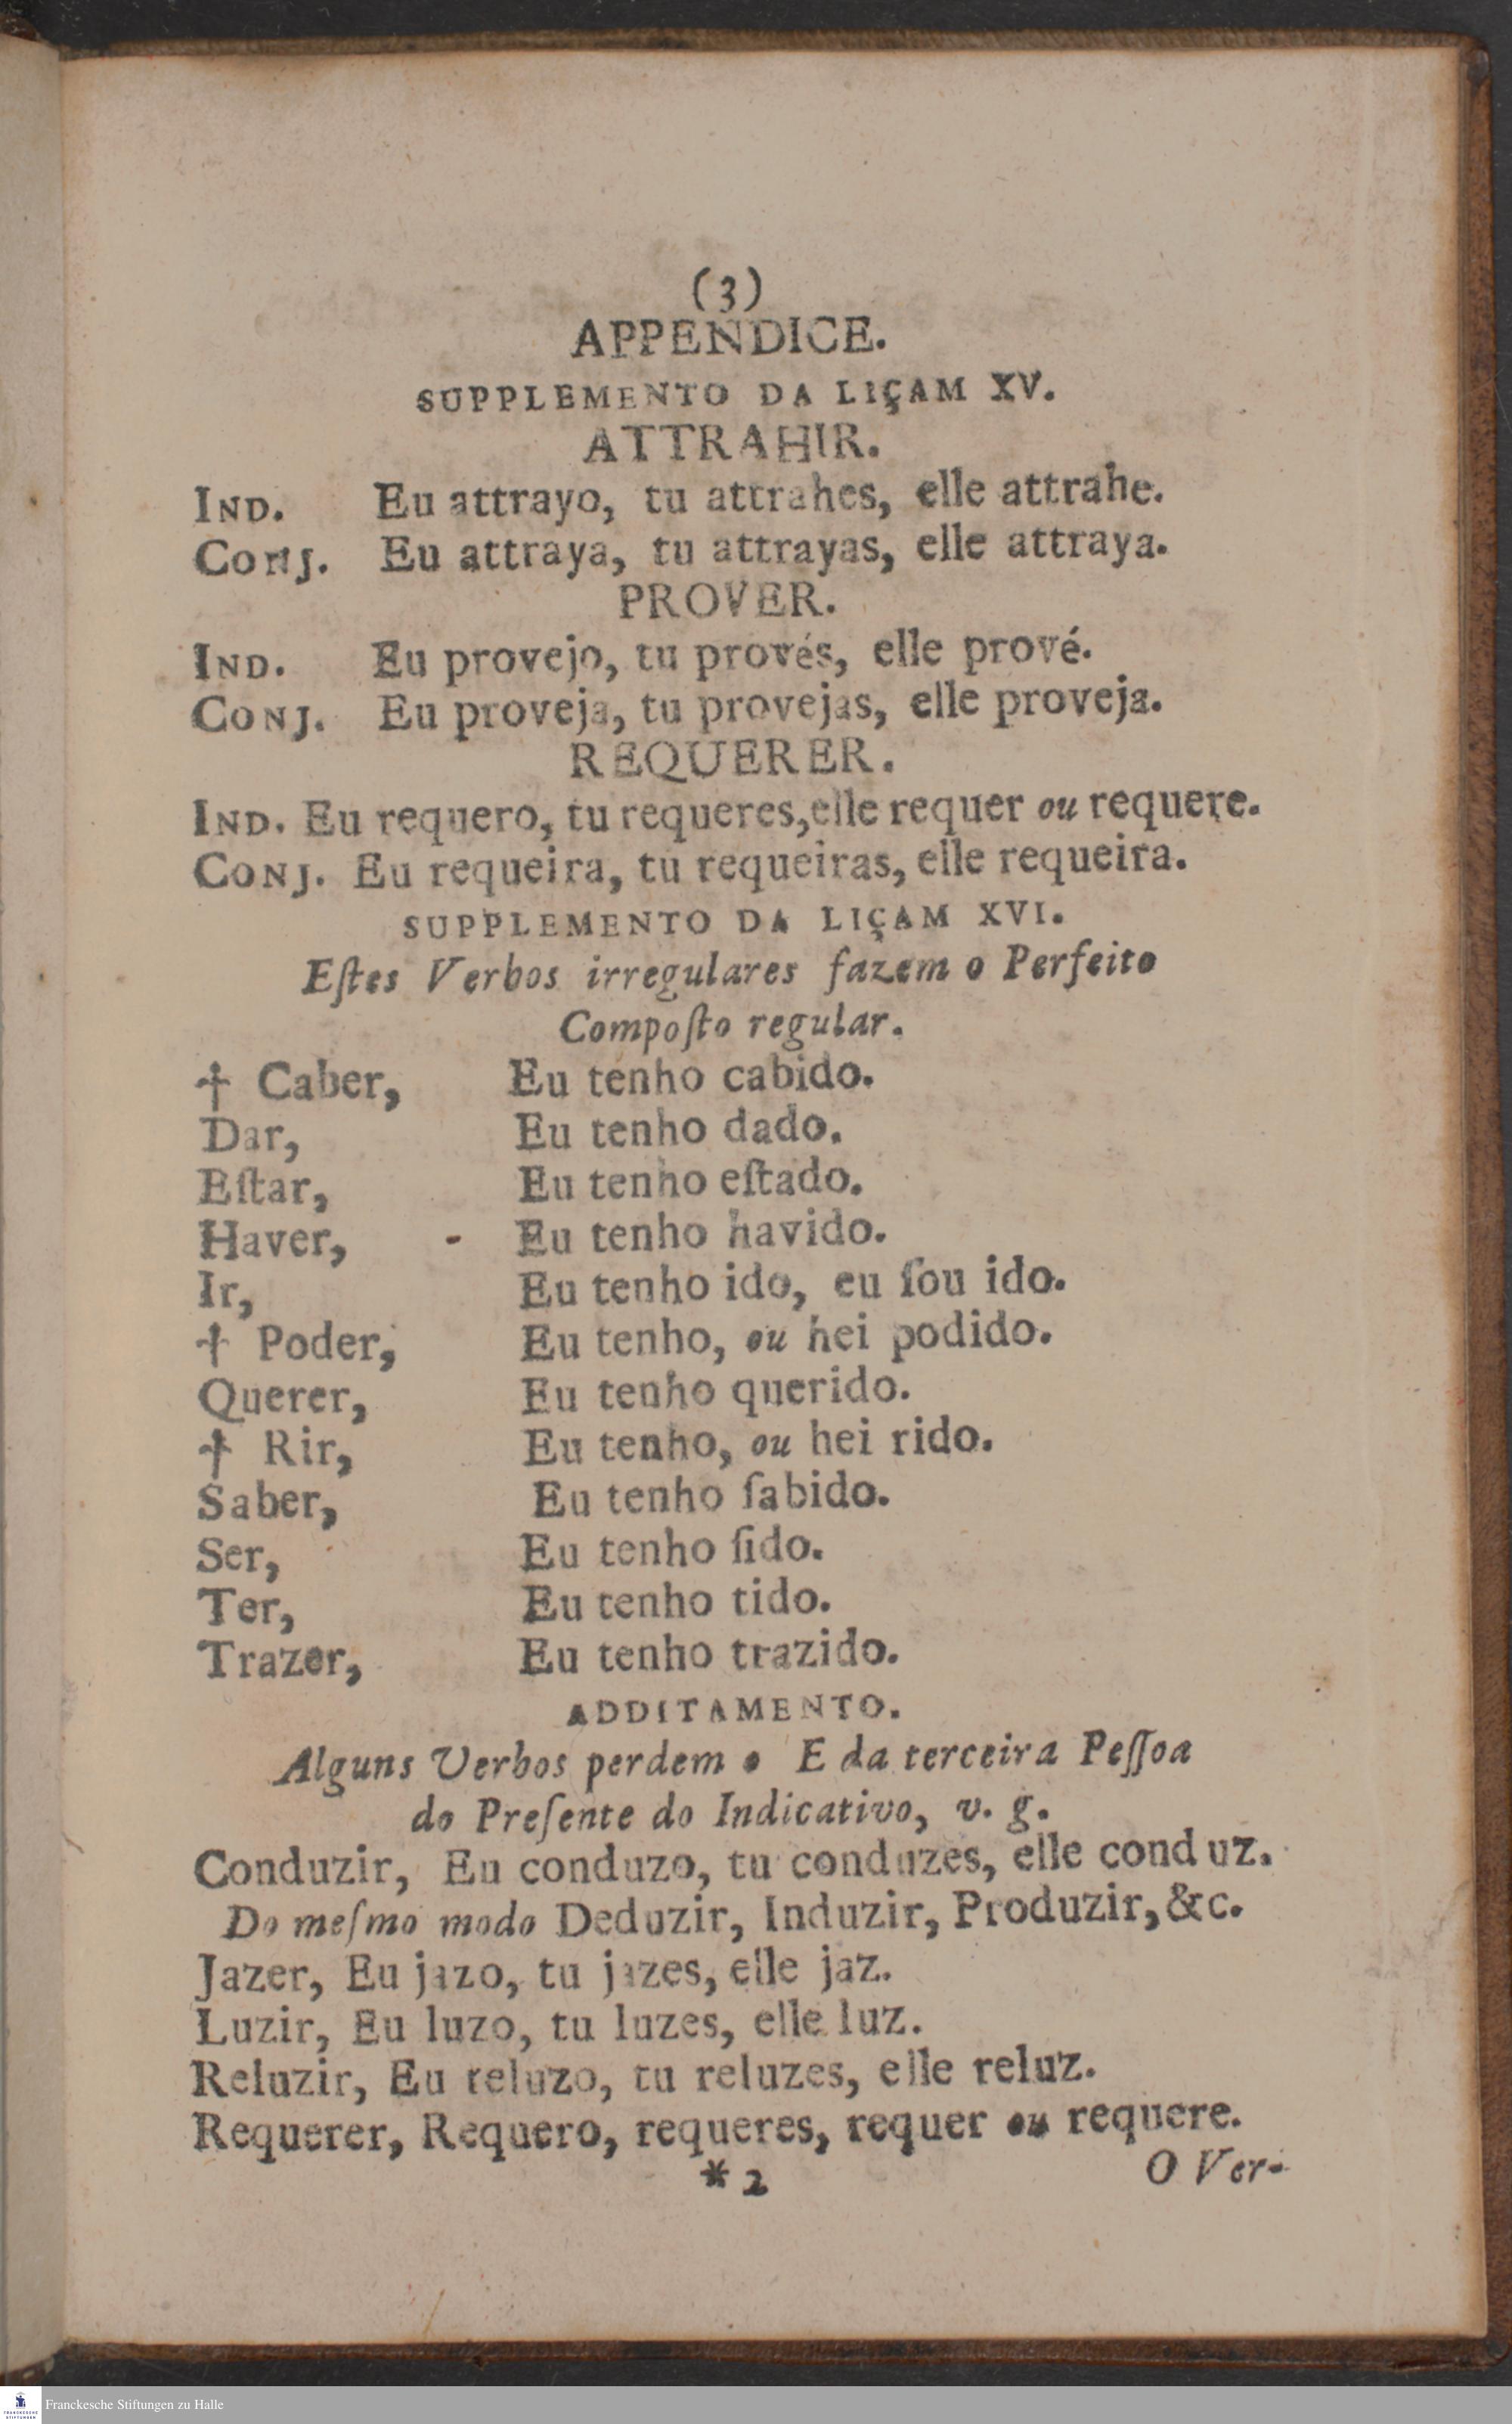 (3)
APPENDICE.
SUPPLEMENTO DA LIÇAM XV.
ATTRAHIR.
IND. Eu attrayo, tu attrahes, elle attrahe.
CONJ. Eu attraya, tu attrayas, elle attraya.
PROVER.
IND. Eu provejo, tu provés, elle prové.
CONJ. Eu proveja, tu provejas, elle proveja.
REQUERER.
IND. Eu requero, tu requeres, elle requer ou requere.
CONJ. Eu requeira, tu requeiras, elle requeira.
SUPPLEMENTO DA LIÇAM XVI.
Eſtes Verbos irregulares fazem o Perfeito
Compoſto regular.
† Caber, Eu tenho cabido.
Dar, Eu tenho dado.
Eſtar, Eu tenho eſtado.
Haver, - Eu tenho havido.
Ir, Eu tenho ido, eu ſou ido.
† Poder, Eu tenho, ou hei podido.
Querer, Eu tenho querido.
† Rir, Eu tenho, ou hei rido.
Saber, Eu tenho ſabido.
Ser, Eu tenho ſido.
Ter, Eu tenho tido.
Trazer, Eu tenho trazido.
ADDITAMENTO.
Alguns Verbos perdem o E da terceira Peſſoa
do Preſente do Indicativo, v. g.
Conduzir, Eu conduzo, tu conduzes, elle conduz.
Do meſmo modo Deduzir, Induzir, Produzir, &c.
Jazer, Eu jazo, tu jazes, elle jaz.
Luzir, Eu luzo, tu luzes, elle luz.
Reluzir, Eu reluzo, tu reluzes, elle reluz.
Requerer, Requero, requeres, requer ou requere.
* 2 O Ver-
Franckesche Stiftungen zu Halle
FRANCKESCHE
STIFTUNGEN